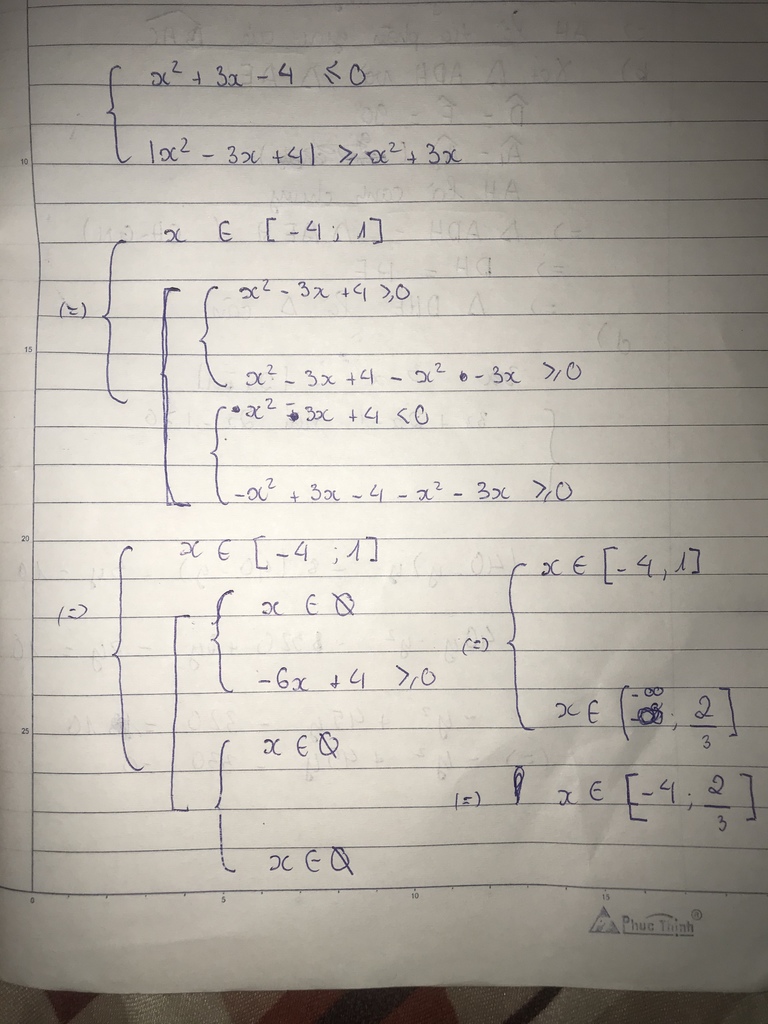 x² + 3x - 4 ≤ 0
|x² - 3x + 4| ≥ x² + 3x
x ∈ [-4; 1]
(=)
x² - 3x + 4 ≥ 0
x² - 3x + 4 - x² - 3x ≥ 0
x² - 3x + 4 < 0
-x² + 3x - 4 - x² - 3x ≥ 0
(=) x ∈ [-4; 1]
x ∈ Q
-6x + 4 ≥ 0
x ∈ Q
x ∈ Q
(=) x ∈ [-4, 1]
x ∈ (-∞; 2/3]
(=) x ∈ [-4; 2/3]
10
15
20
25
0 5 10 15
Phuc Thinh®